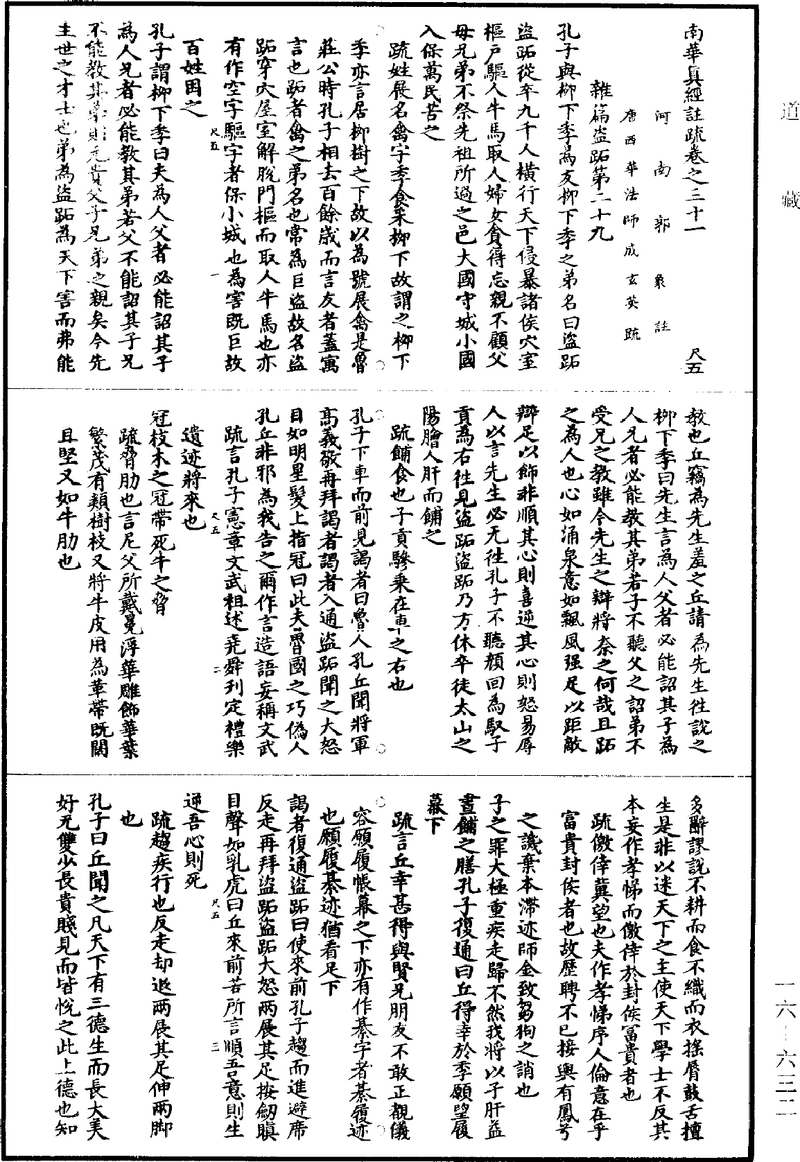 道藏
南華真經註疏卷之三十一　尺五
河南郭象註
唐西華法師成玄英疏
雜篇盜跖第二十九
孔子與柳下季為友柳下季之弟名曰盜跖
盜跖從卒九千人橫行天下侵暴諸侯穴室
樞戶驅人牛馬取人婦女貪得忘親不顧父
母兄弟不祭先祖所過之邑大國守城小國
入保萬民苦之
疏姓展名禽字季食采柳下故謂之柳下
季亦言居柳樹之下故以為號展禽是魯
莊公時孔子相去百餘歲而言友者蓋寓
言也跖者禽之弟名也常為巨盜故名盜
跖穿穴屋室解脫門樞而取人牛馬也亦
有作空字驅字者保小城也為害既巨故
尺五　一
百姓困之
孔子謂柳下季曰夫為人父者必能詔其子
為人兄者必能教其弟若父不能詔其子兄
不能教其弟則无貴父子兄弟之親矣今先
生世之才士也弟為盜跖為天下害而弗能
教也丘竊為先生羞之丘請為先生往說之
柳下季曰先生言為人父者必能詔其子為
人兄者必能教其弟若子不聽父之詔弟不
受兄之教雖今先生之辯將奈之何哉且跖
之為人也心如涌泉意如飄風强足以距敵
辯足以飾非順其心則喜逆其心則怒易辱
人以言先生必无往孔子不聽顏回為馭子
貢為右往見盜跖盜跖乃方休卒徒太山之
陽膾人肝而餔之
疏餔食也子貢驂乘在車之右也
孔子下車而前見謁者曰魯人孔丘聞將軍
高義敬再拜謁者謁者入通盜跖聞之大怒
目如明星髮上指冠曰此夫魯國之巧偽人
孔丘非邪為我告之爾作言造語妄稱文武
疏言孔子憲章文武祖述堯舜刊定禮樂
尺五　二
遺迹將來也
冠枝木之冠帶死牛之脅
疏脅肋也言尼父所戴冕浮華雕飾華葉
繁茂有類樹枝又將牛皮用為革帶既闊
且堅又如牛肋也
多辭謬說不耕而食不織而衣搖脣鼓舌擅
生是非以迷天下之主使天下學士不反其
本妄作孝悌而儌倖於封侯富貴者也
疏儌倖冀望也夫作孝悌序人倫意在乎
富貴封侯者也故歷聘不已接輿有鳳兮
之譏棄本滯迹師金致芻狗之誚也
子之罪大極重疾走歸不然我將以子肝益
晝餔之膳孔子復通曰丘得幸於季願望履
幕下
疏言丘幸甚得與賢兄朋友不敢正覩儀
容願履帳幕之下亦有作綦字者綦履迹
也願履綦迹猶看足下
謁者復通盜跖曰使來前孔子趨而進避席
反走再拜盜跖盜跖大怒兩展其足按劒瞋
目聲如乳虎曰丘來前若所言順吾意則生
尺五　三
逆吾心則死
疏趨疾行也反走却退兩展其足伸兩脚
也
孔子曰丘聞之凡天下有三德生而長大美
好无雙少長貴賤見而皆悅之此上德也知
一六—六三二